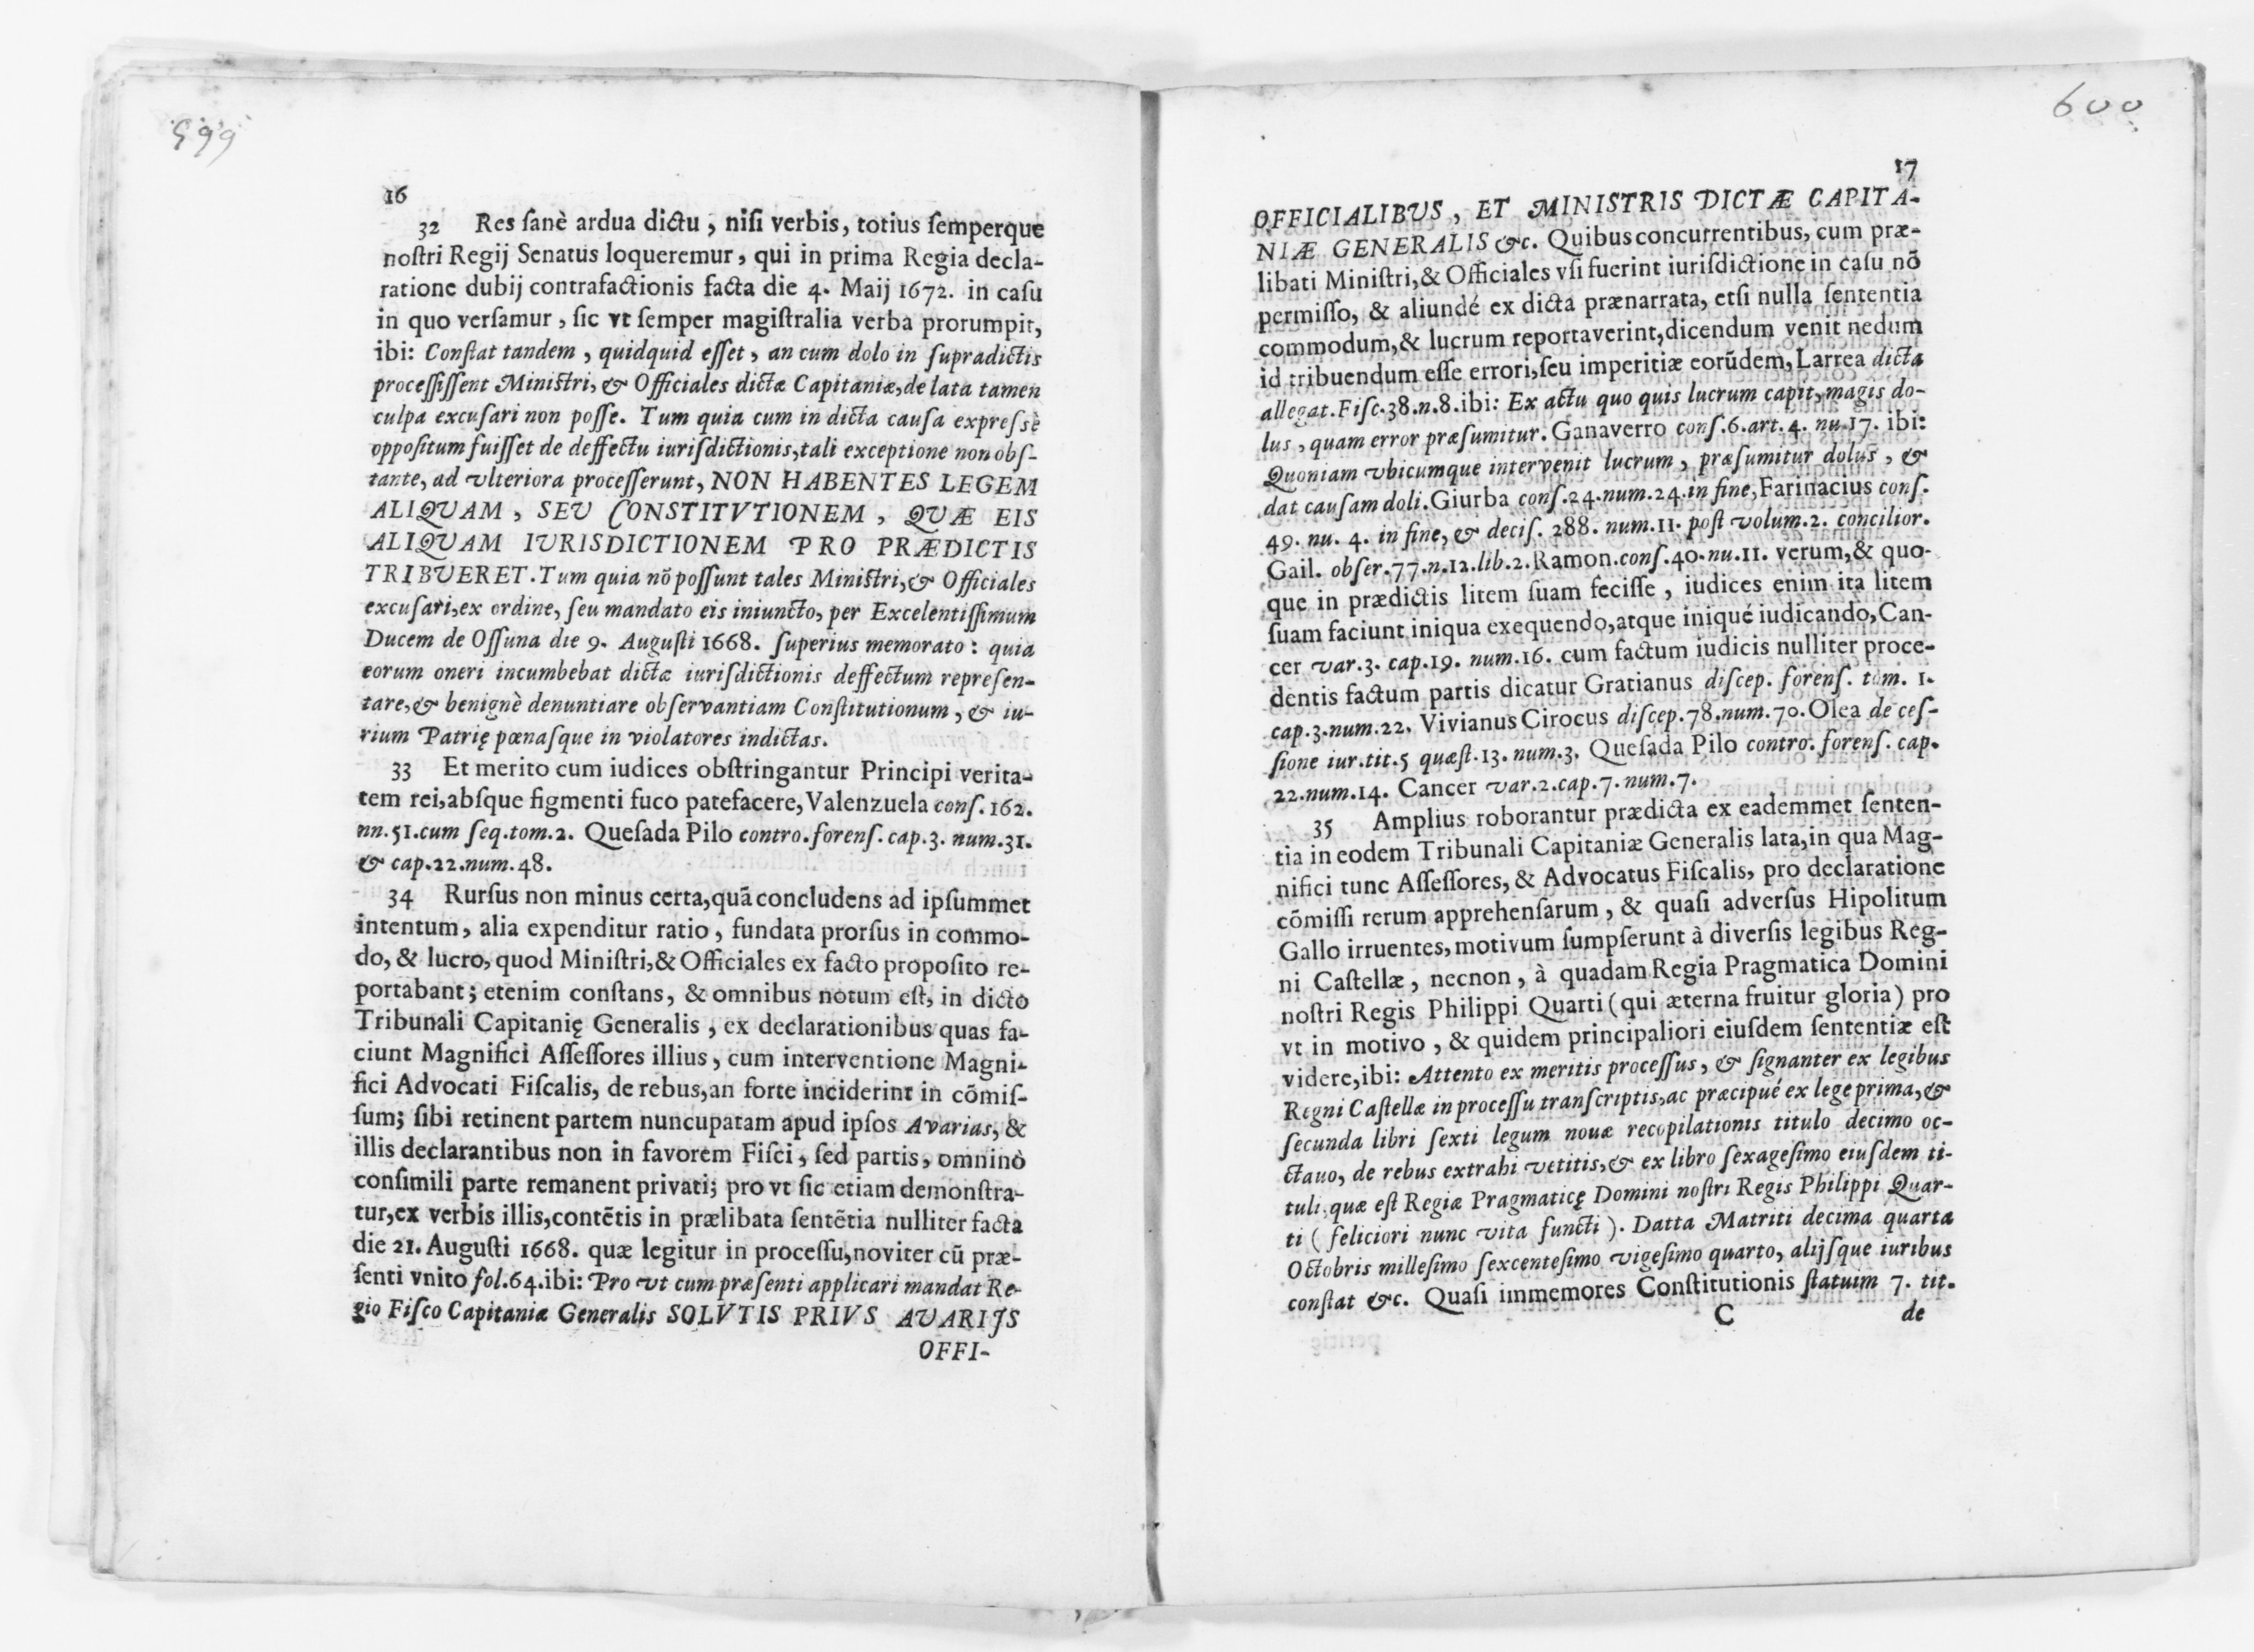 599
16
32 Res ſanè ardua dictu, niſi verbis, totius ſemperque
noſtri Regij Senatus loqueremur, qui in prima Regia decla-
ratione dubij contrafactionis facta die 4. Maij 1672. in caſu
in quo verſamur, ſic vt ſemper magiſtralia verba prorumpit,
ibi: Conſtat tandem, quidquid eſſet, an cum dolo in ſupradictis
proceſſiſſent Miniſtri, & Officiales dictæ Capitaniæ, de lata tamen
culpa excuſari non poſſe. Tum quia cum in dicta cauſa expreſsè
oppoſitum fuiſſet de deffectu iuriſdictionis, tali exceptione non obſ-
tante, ad vlteriora proceſſerunt, NON HABENTES LEGEM
ALIQVAM, SEV CONSTITVTIONEM, QVÆ EIS
ALIQVAM IVRISDICTIONEM PRO PRÆDICTIS
TRIBVERET. Tum quia nõ poſſunt tales Miniſtri, & Officiales
excuſari, ex ordine, ſeu mandato eis iniuncto, per Excelentiſſimum
Ducem de Oſſuna die 9. Auguſti 1668. ſuperius memorato: quia
eorum oneri incumbebat dictæ iuriſdictionis deffectum repreſen-
tare, & benignè denuntiare obſervantiam Conſtitutionum, & iu-
rium Patrię pœnaſque in violatores indictas.
33 Et merito cum iudices obſtringantur Principi verita-
tem rei, abſque figmenti fuco patefacere, Valenzuela conſ. 162.
nn. 51. cum ſeq. tom. 2. Queſada Pilo contro. forenſ. cap. 3. num. 31.
& cap. 22. num. 48.
34 Rurſus non minus certa, quã concludens ad ipſummet
intentum, alia expenditur ratio, fundata prorſus in commo-
do, & lucro, quod Miniſtri, & Officiales ex facto propoſito re-
portabant; etenim conſtans, & omnibus notum eſt, in dicto
Tribunali Capitanię Generalis, ex declarationibus quas fa-
ciunt Magnifici Aſſeſſores illius, cum interventione Magni-
fici Advocati Fiſcalis, de rebus, an forte inciderint in cõmiſ-
ſum; ſibi retinent partem nuncupatam apud ipſos Avarias, &
illis declarantibus non in favorem Fiſci, ſed partis, omninò
conſimili parte remanent privati; pro vt ſic etiam demonſtra-
tur, ex verbis illis, contẽtis in prælibata ſentẽtia nulliter facta
die 21. Auguſti 1668. quæ legitur in proceſſu, noviter cũ præ-
ſenti vnito fol. 64. ibi: Pro vt cum præſenti applicari mandat Re-
gio Fiſco Capitaniæ Generalis SOLVTIS PRIVS AVARIJS
OFFI-
600
17
OFFICIALIBVS, ET MINISTRIS DICTÆ CAPITA-
NIÆ GENERALIS &c. Quibus concurrentibus, cum præ-
libati Miniſtri, & Officiales vſi fuerint iuriſdictione in caſu nõ
permiſſo, & aliundé ex dicta prænarrata, etſi nulla ſententia
commodum, & lucrum reportaverint, dicendum venit nedum
id tribuendum eſſe errori, ſeu imperitiæ eorũdem, Larrea dicta
allegat. Fiſc. 38. n. 8. ibi: Ex actu quo quis lucrum capit, magis do-
lus, quam error præſumitur. Ganaverro conſ. 6. art. 4. nu. 17. ibi:
Quoniam vbicumque intervenit lucrum, præſumitur dolus, &
dat cauſam doli. Giurba conſ. 24. num. 24. in fine, Farinacius conſ.
49. nu. 4. in fine, & deciſ. 288. num. 11. poſt volum. 2. concilior.
Gail. obſer. 77. n. 12. lib. 2. Ramon. conſ. 40. nu. 11. verum, & quo-
que in prædictis litem ſuam feciſſe, iudices enim ita litem
ſuam faciunt iniqua exequendo, atque iniqué iudicando, Can-
cer var. 3. cap. 19. num. 16. cum factum iudicis nulliter proce-
dentis factum partis dicatur Gratianus diſcep. forenſ. tom. 1.
cap. 3. num. 22. Vivianus Cirocus diſcep. 78. num. 70. Olea de ceſ-
ſione iur. tit. 5 quæſt. 13. num. 3. Queſada Pilo contro. forenſ. cap.
22. num. 14. Cancer var. 2. cap. 7. num. 7.
35 Amplius roborantur prædicta ex eademmet ſenten-
tia in eodem Tribunali Capitaniæ Generalis lata, in qua Mag-
nifici tunc Aſſeſſores, & Advocatus Fiſcalis, pro declaratione
cõmiſſi rerum apprehenſarum, & quaſi adverſus Hipolitum
Gallo irruentes, motivum ſumpſerunt à diverſis legibus Reg-
ni Caſtellæ, necnon, à quadam Regia Pragmatica Domini
noſtri Regis Philippi Quarti (qui æterna fruitur gloria) pro
vt in motivo, & quidem principaliori eiuſdem ſententiæ eſt
videre, ibi: Attento ex meritis proceſſus, & ſignanter ex legibus
Regni Caſtellæ in proceſſu tranſcriptis, ac præcipué ex lege prima, &
ſecunda libri ſexti legum nouæ recopilationis titulo decimo oc-
ctauo, de rebus extrahi vetitis, & ex libro ſexageſimo eiuſdem ti-
tuli, quæ eſt Regiæ Pragmaticę Domini noſtri Regis Philippi Quar-
ti (feliciori nunc vita functi). Datta Matriti decima quarta
Octobris milleſimo ſexcenteſimo vigeſimo quarto, alijſque iuribus
conſtat &c. Quaſi immemores Conſtitutionis ſtatuim 7. tit.
C de